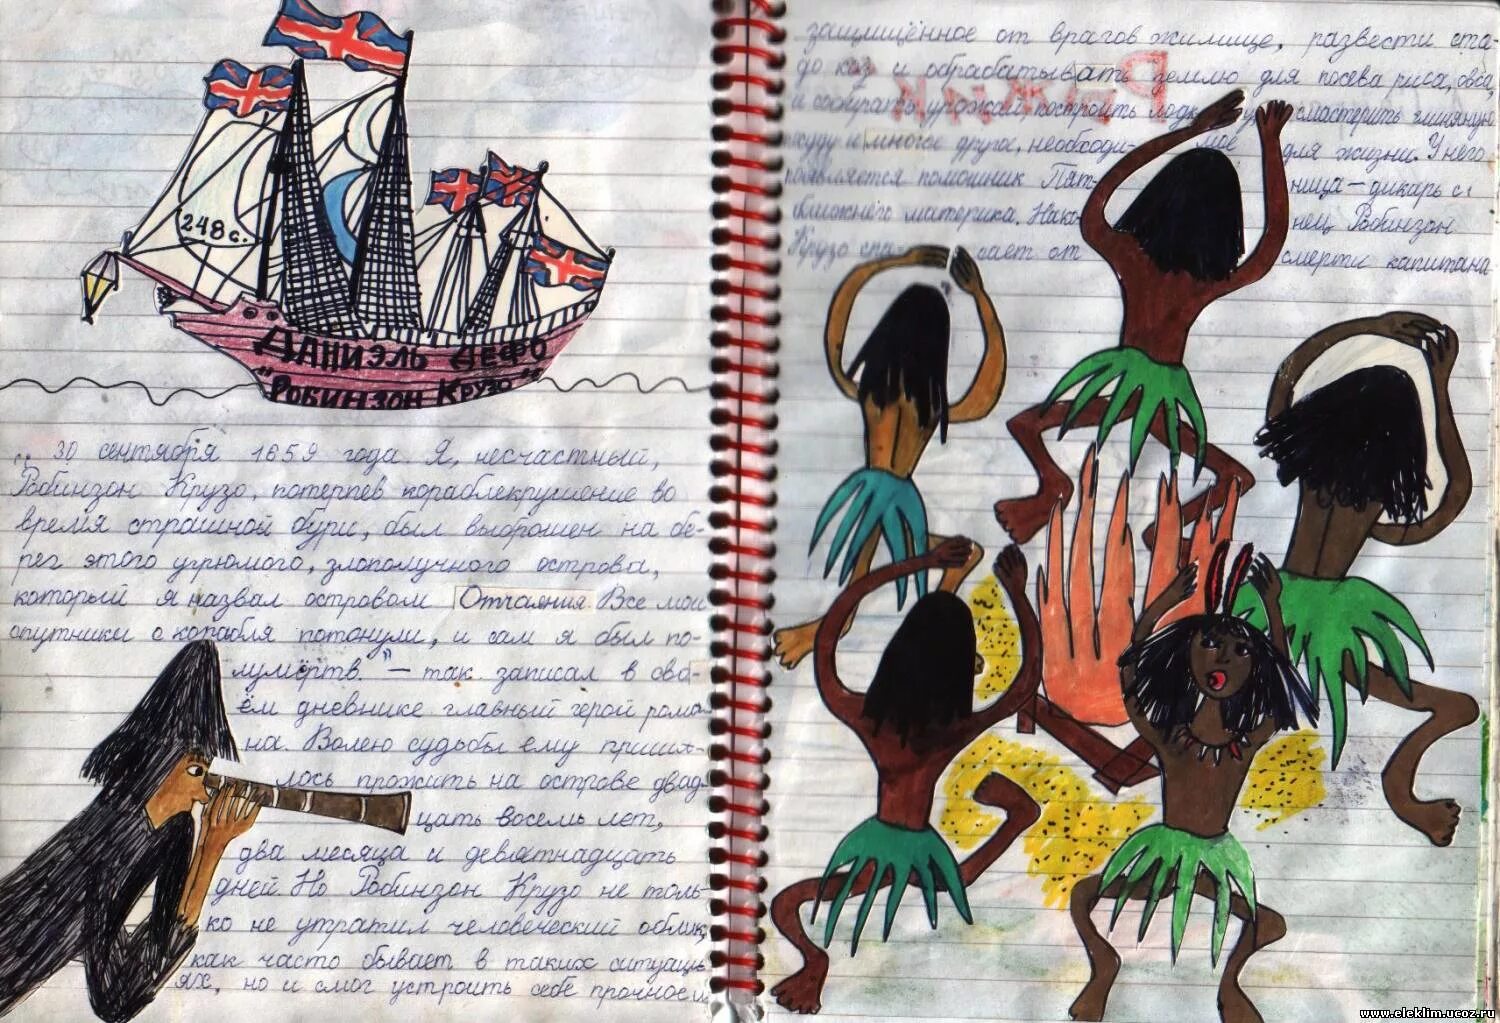 248 с.
ДАНИЭЛЬ ДЕФО
"РОБИНЗОН КРУЗО"
" 30 сентября 1659 года. Я, несчастный,
Робинзон Крузо, потерпев кораблекрушение во
время страшной бури, был выброшен на бе-
рег этого угрюмого, злополучного острова,
который я назвал островом Отчаяния. Все мои
спутники с корабля потонули, и сам я был по-
лумёртв." – так записал в сво-
ём дневнике главный герой рома-
на. Волею судьбы ему приш-
лось прожить на острове двад-
цать восемь лет,
два месяца и девятнадцать
дней. Но Робинзон Крузо не толь-
ко не утратил человеческий облик,
как часто бывает в таких ситуаци-
ях, но и смог устроить себе прочное и
защищённое от врагов жилище, развести ста-
до коз и обрабатывать землю для посева риса, овса,
и собирать урожай, построить смастерить глиняную
и многое другое, необходи- мое для жизни. У него
появляется помошник Пят- ница – дикарь с
ближнего материка. Нако- нец Робинзон
Крузо от смерти капитана
www.eleklim.ucoz.ru